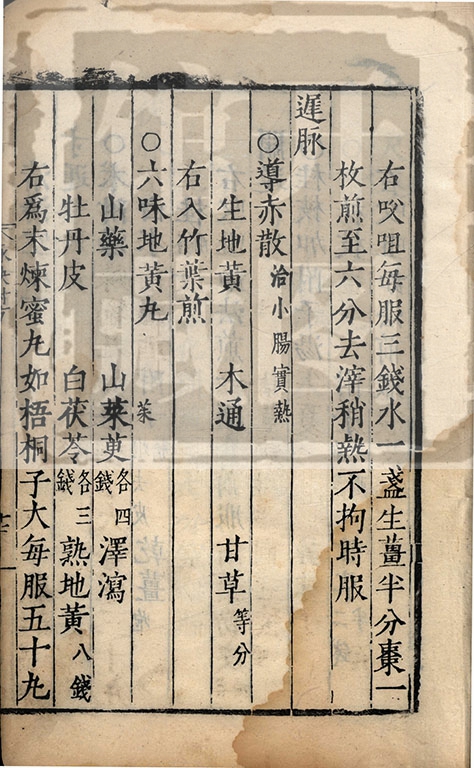 右㕮咀每服三錢水一盞生薑半分棗一
枚煎至六分去滓稍熱不拘時服
遲脉
○導赤散治小腸實熱
右生地黃 木通 甘草等分
右入竹葉煎
○六味地黃丸
山藥 山茱萸各四錢 澤瀉
牡丹皮 白茯苓各三錢 熟地黃八錢
右爲末煉蜜丸如梧桐子大每服五十丸